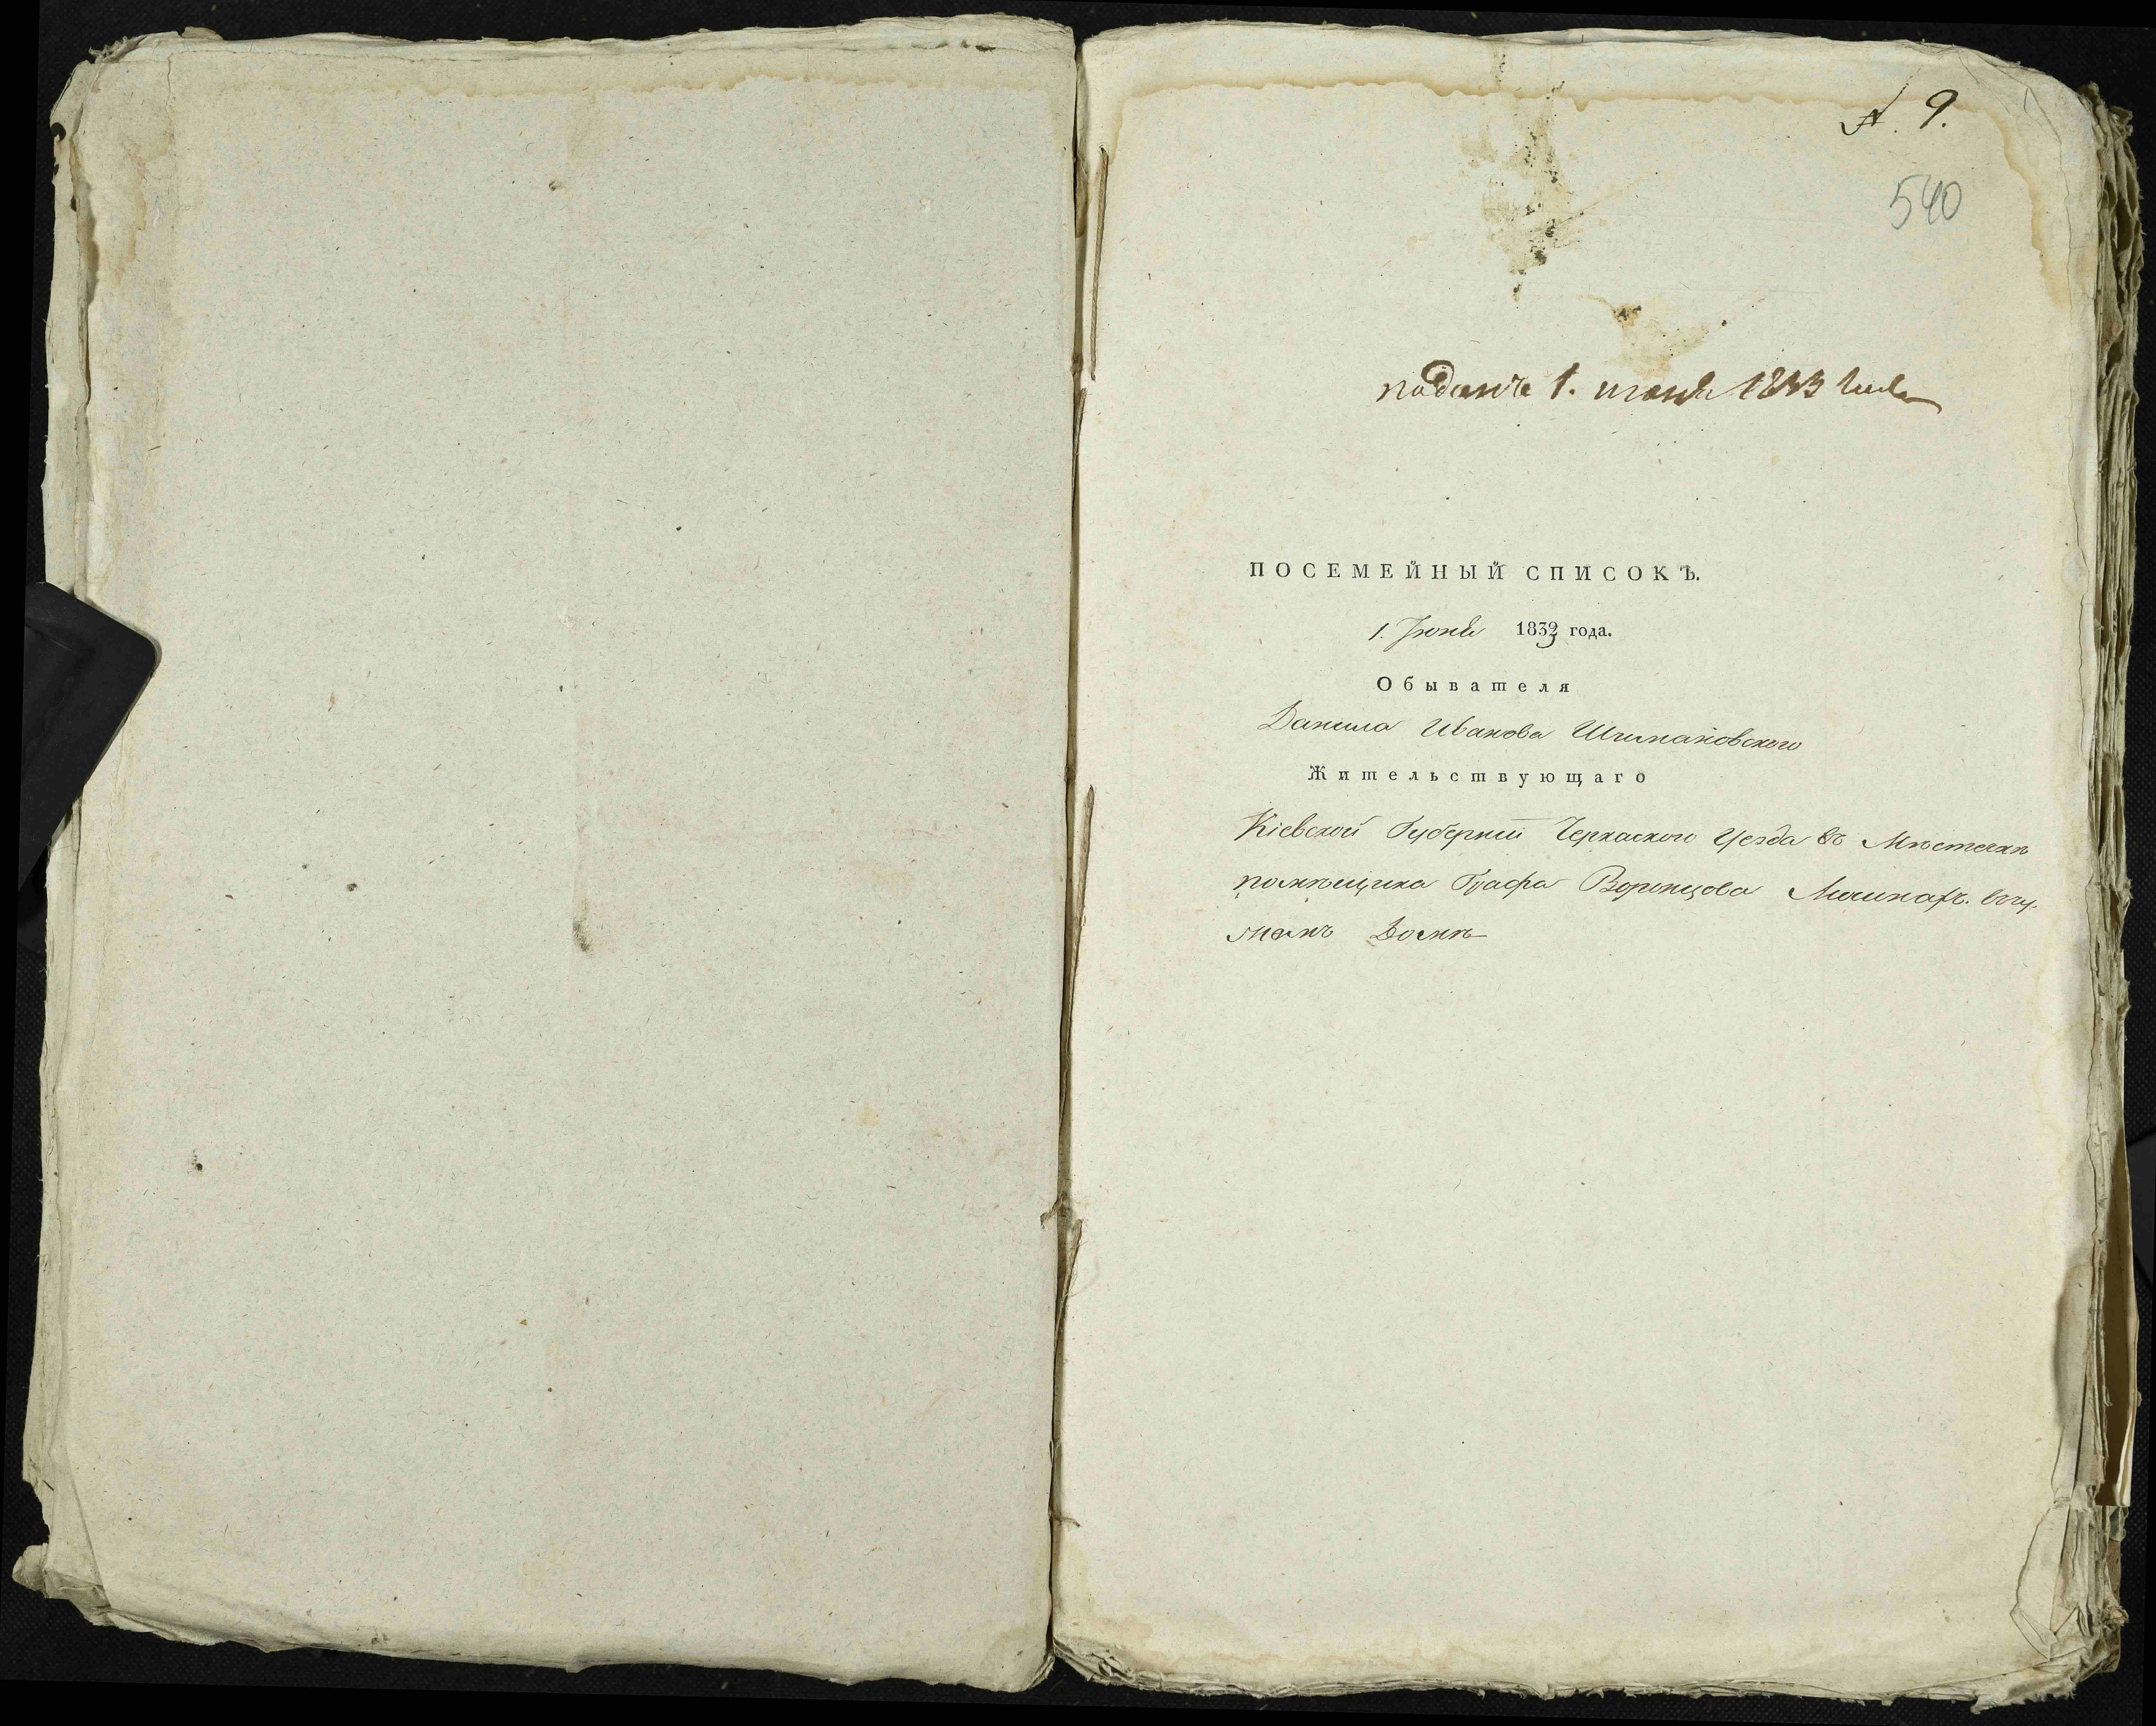 А. 9.
540
поданъ 1. июня 1833 года
ПОСЕМЕЙНЫЙ СПИСОКЪ.
1. Июня 1833 года.
Обывателя
Данила Иванова Шимановского
Жительствующаго
Кіевской Губерніи Черкаского Уезда въ Мѣстечкѣ
помѣщика Графа Воронцова Мошнахъ. въчу-
жомъ Домѣ